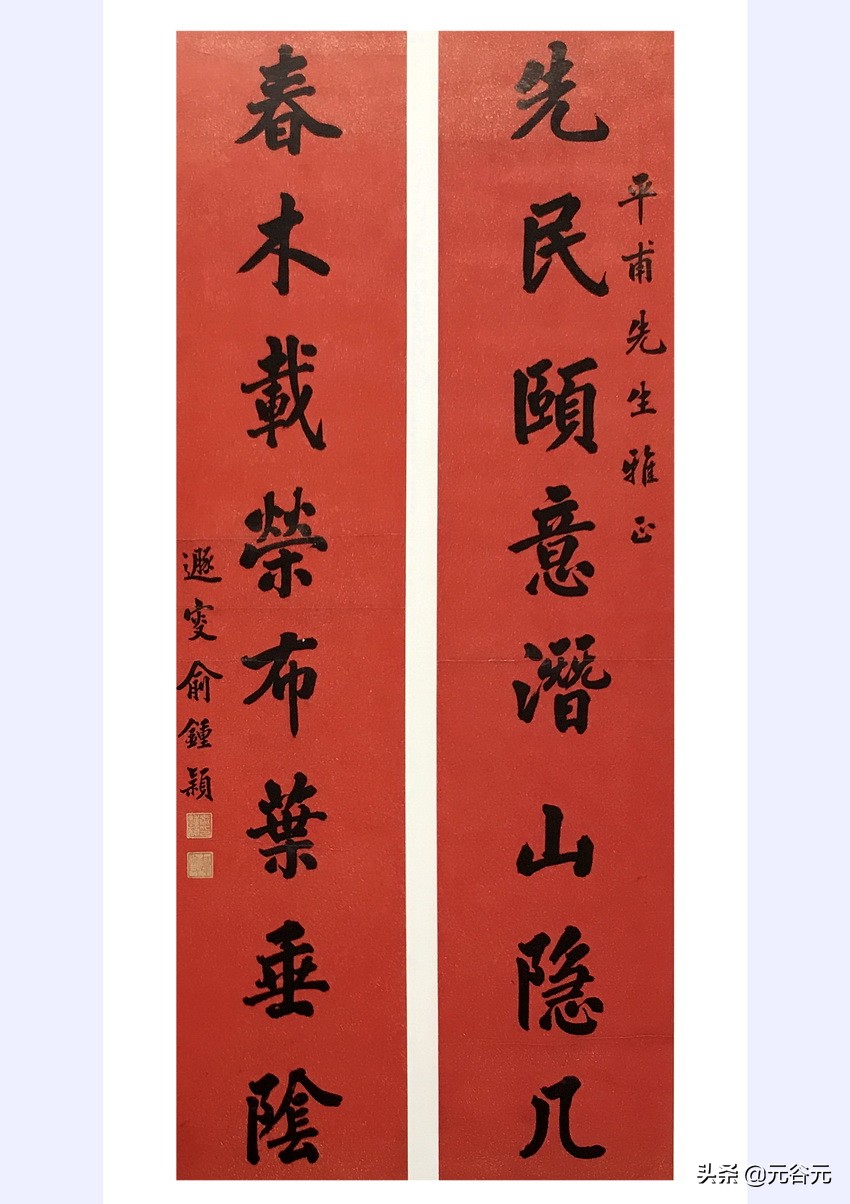 平甫先生雅正
先民頤意潛山隐几
春木載榮布葉垂陰
遯叜俞鍾穎
头条 @元谷元